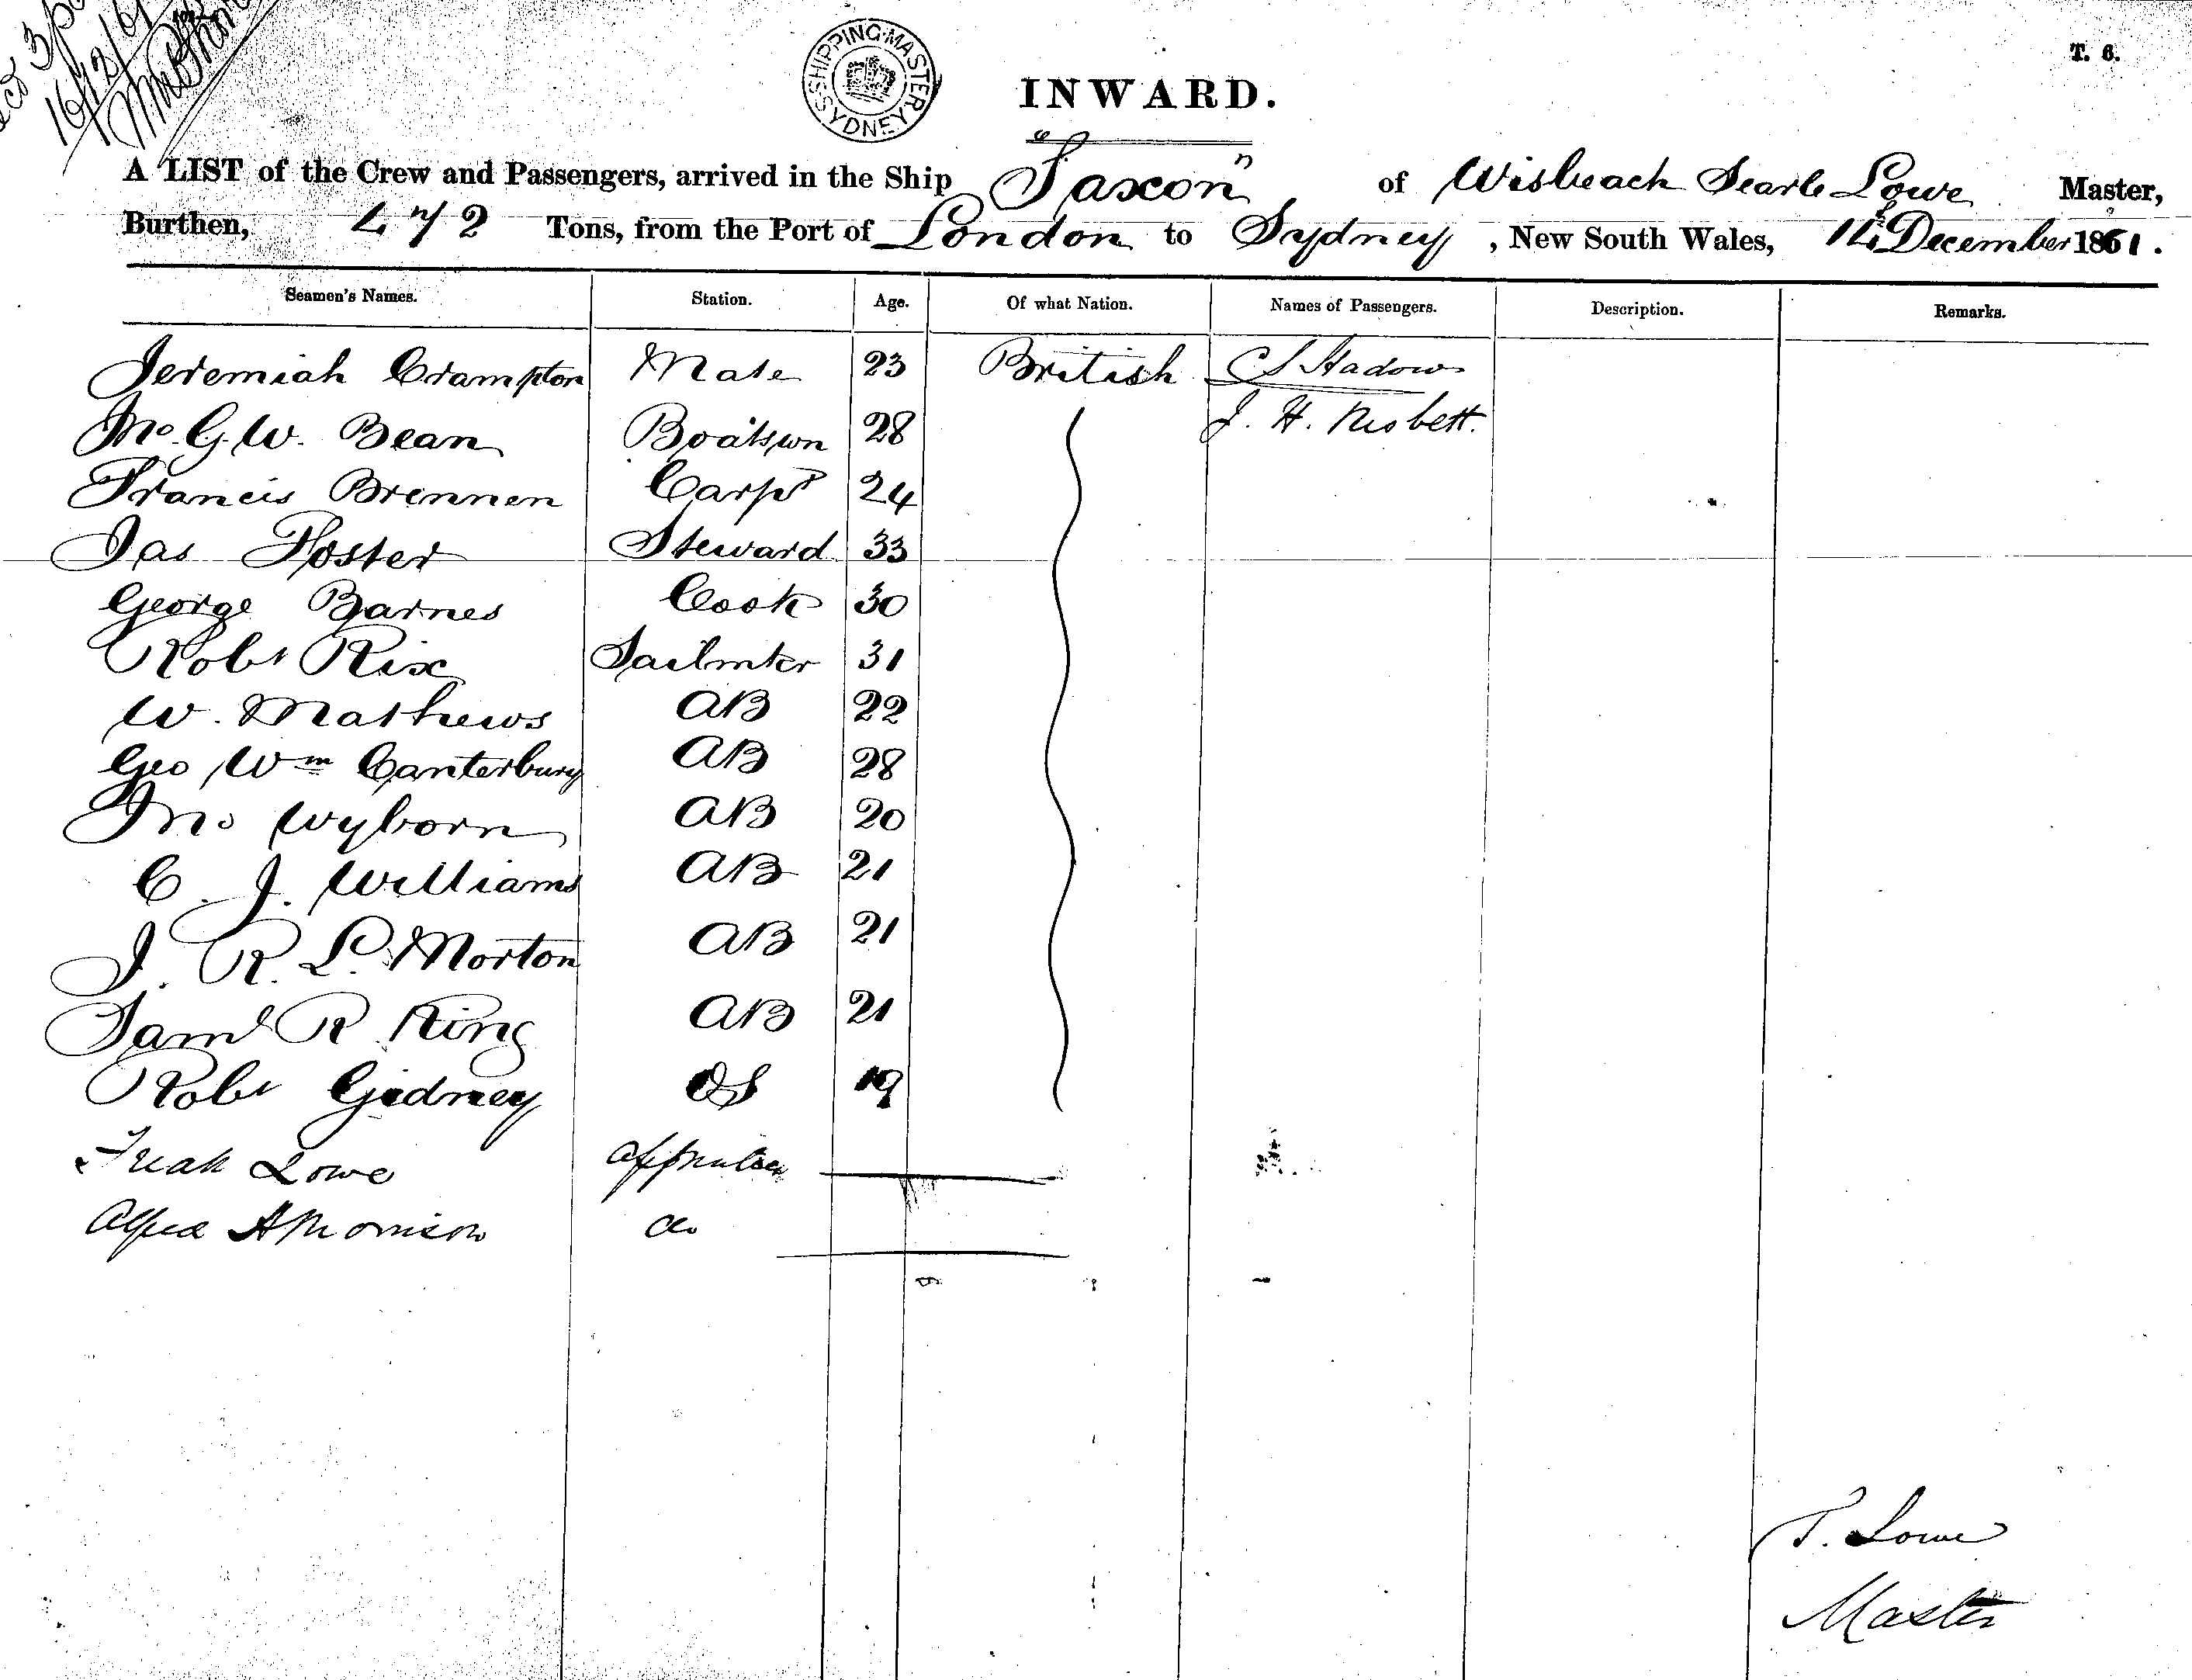 16/12/61
SHIPPING MASTER SYDNEY
T. 6.
INWARD.
A LIST of the Crew and Passengers, arrived in the Ship "Saxon" of Wisbeach Searle Lowe Master,
Burthen, 472 Tons, from the Port of London to Sydney, New South Wales, 14 December 1861.
Seamen's Names. Station. Age. Of what Nation. Names of Passengers. Description. Remarks.
Jeremiah Crampton Mate 23 British C S Hadow
Jno. G. W. Bean Boatswn 28 J. H. Nisbett.
Francis Brennen Carpr 24
Jas Foster Steward 33
George Barnes Cook 30
Robt Rix Sailmker 31
W. Mathews AB 22
Geo Wm Canterbury AB 28
Jno Wyborn AB 20
C. J. Williams AB 21
J. R. L. Morton AB 21
Saml R King AB 21
Robt Gidney OS 19
Lowe apprentice
Alfred A Morrison do
T. Lowe
Master